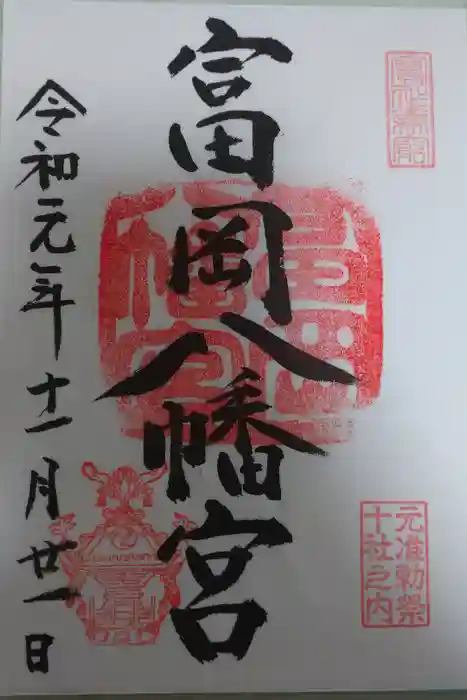 元准勅祭
十社之内
富岡八幡宮
令和元年十一月廿一日